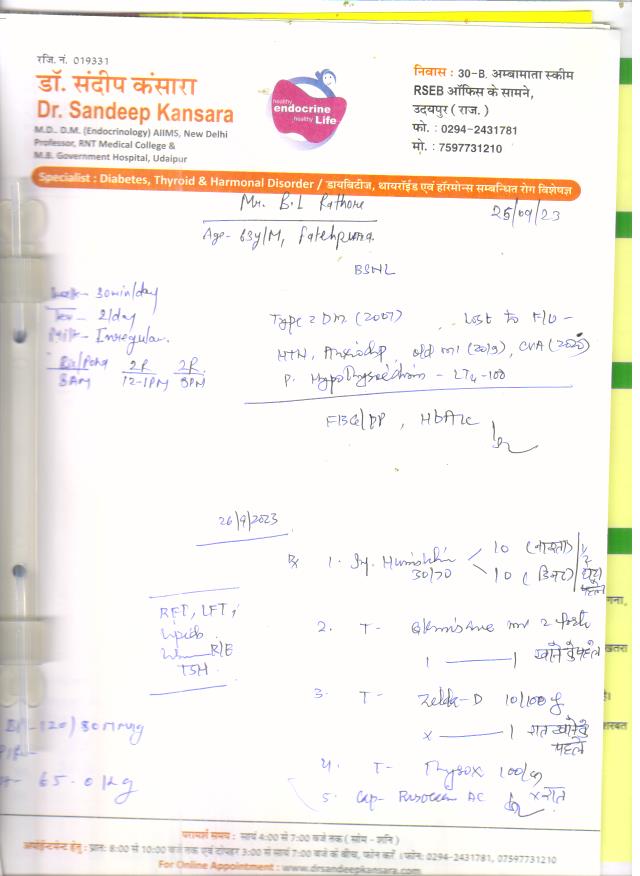 रजि. नं. 019331
डॉ. संदीप कंसारा
Dr. Sandeep Kansara
M.D., D.M. (Endocrinology) AIIMS, New Delhi
Professor, RNT Medical College &
M.B. Government Hospital, Udaipur
healthy
endocrine
healthy Life
निवास : 30-B, अम्बामाता स्कीम
RSEB ऑफिस के सामने,
उदयपुर ( राज. )
फो. : 0294-2431781
मो. : 7597731210
Specialist : Diabetes, Thyroid & Harmonal Disorder / डायबिटीज, थायरॉईड एवं हॉरमोन्स सम्बन्धित रोग विशेषज्ञ
Mr. B.L Rathore
25/09/23
Age- 63y/M, Fatehpura.
BSNL
Walk- 30min/day
Tea - 2/day
Irregular.
2R 2R
8AM 12-1PM 8PM
Type 2 DM (2007) Lost to F/U -
HTN, old MI (2019), CVA (2020)
P. Hypothyroidism - LT4-100
FBG/PP, HbA1c
26/9/2023
Rx 1. Inj. 10 (नाश्ता)
30/70 10 (डिनर)
1/2 घंटा पहले
RFT, LFT,
Lipids
R/E
TSH
2. T- 2 forte
1 — 1 खाने से पहले
3. T- Zelda-D 10/100
x — 1 रात खाने से पहले
BP-120/80mmHg
65.0 kg
4. T- Thysox 100
5. Cap-
परामर्श समय : सायं 4:00 से 7:00 बजे तक ( सोम - शनि )
अपॉईन्टमेन्ट हेतु : प्रातः 8:00 से 10:00 बजे तक एवं दोपहर 3:00 से सायं 7:00 बजे के बीच, फोन करें । फोन: 0294-2431781, 07597731210
For Online Appointment : www.drsandeepkansara.com